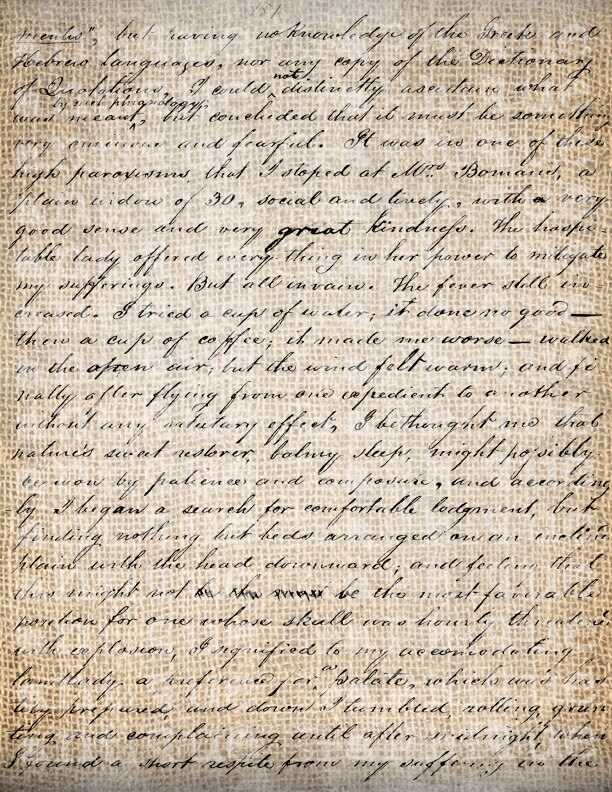 mentis", but having no knowledge of the Greek and
Hebrew Languages, nor any copy of the Dictionary
of Quotations, I could not distinctly ascertain what
was meant by such phrasiology, but concluded that it must be something
very and fearful. It was in one of these
high paroxisms that I stoped at Mrs Bomans, a
plain widow of 30, social and lively, with a very
good sense and very great kindness. The hospi-
table lady offered every thing in her power to mitigate
my sufferings. But all in vain. The fever still in-
creased. I tried a cup of water; it done no good —
then a cup of coffee; it made me worse — walked
in the open air; but the wind felt warm; and fi
nally after flying from one expedient to another
without any salutary effect, I bethought me that
nature's sweet restorer, balmy sleep, might possibly
be won by patience and composure, and according
-ly I began a search for comfortable lodgment, but
finding nothing but beds arranged on an inclin
plain with the head downward; and feeling that
this might not be the most favorable
position for one whose skull was hourly threatened
with explosion, I signified to my accomodating
landlady a preference for a palate, which was has
tily prepared, and down I tumbled, rolling, grun
ting and complaining until after midnight, when
I found a short respite from my suffering in the